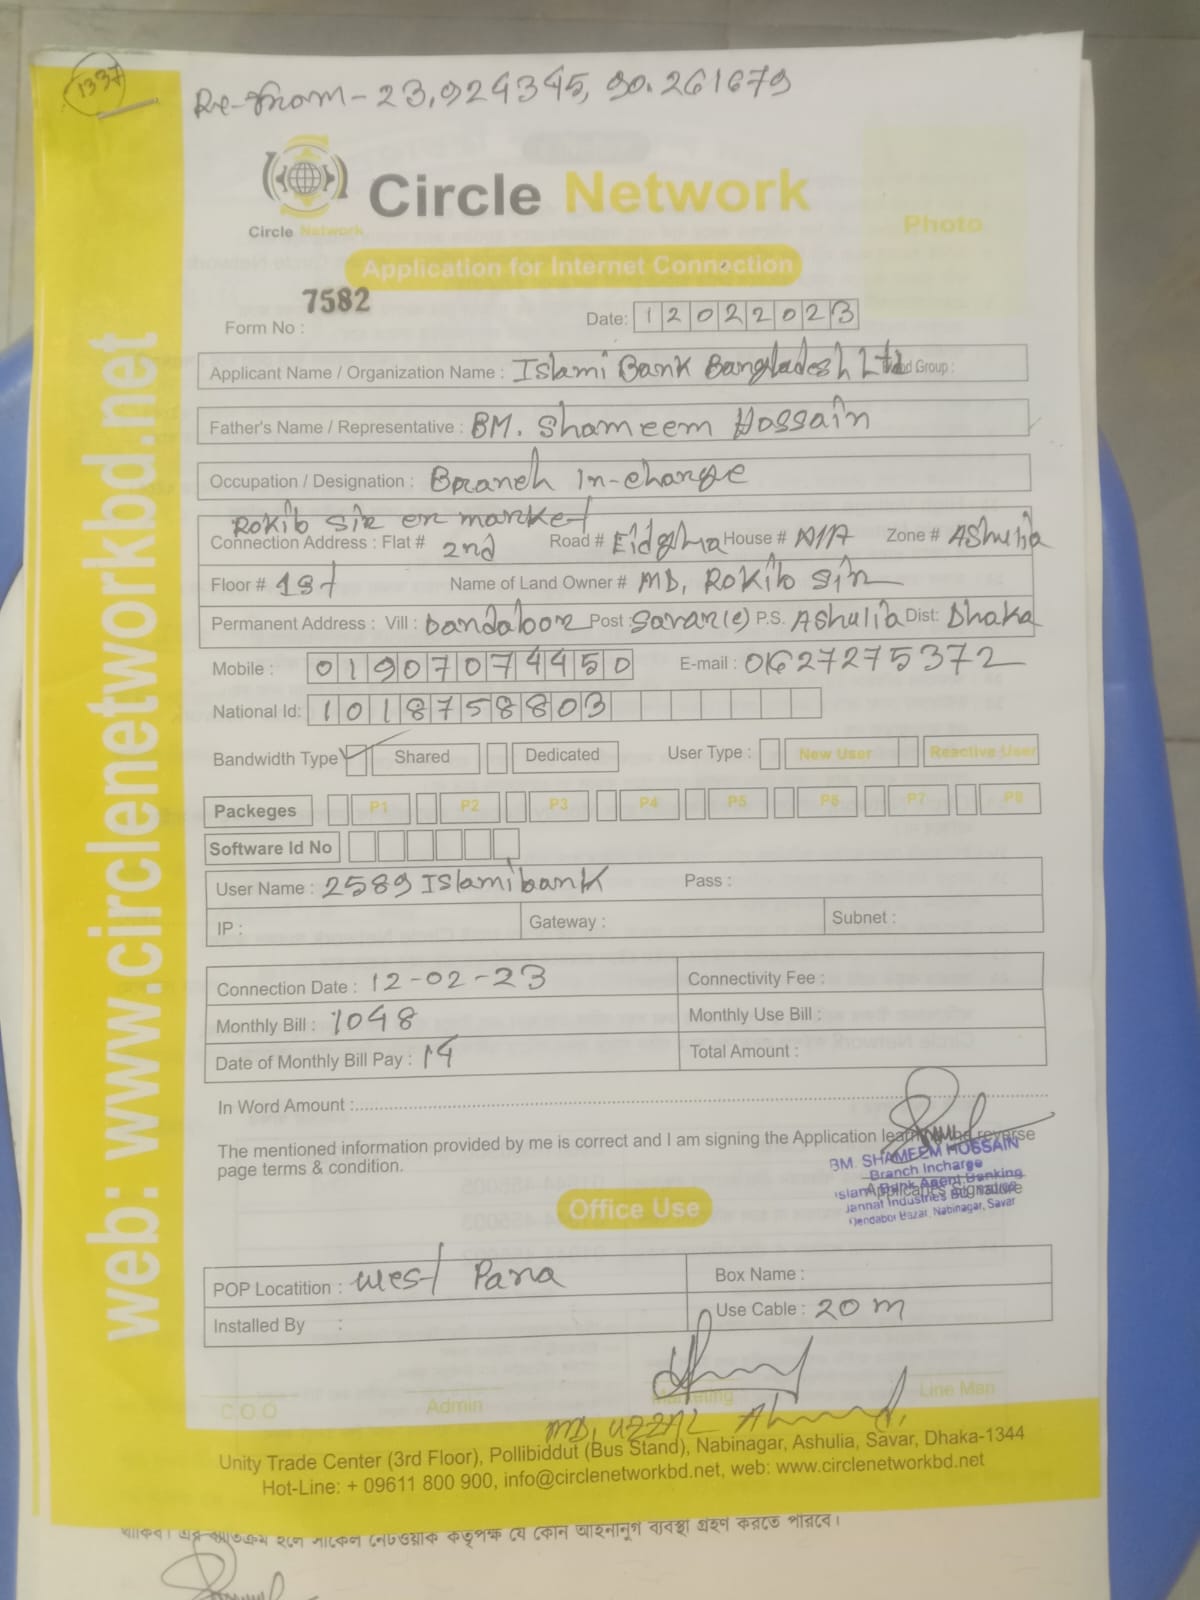 1337
Re-from-23.924345, 90.261679
Circle Network
Circle Network
Photo
Application for Internet Connection
7582
Form No :
Date: 12022023
Applicant Name / Organization Name : Islami Bank Bangladesh Ltd Group :
Father's Name / Representative : BM. Shameem Hossain
Occupation / Designation : Branch In-charge
Rokib Sir er market
Connection Address : Flat # 2nd Road # Eidgha House # N/A Zone # AShulia
Floor # 1st Name of Land Owner # MD. Rokib Sir
Permanent Address : Vill : dandabor Post : Savar(e) P.S. AShulia Dist: Dhaka
Mobile : 01907074450 E-mail : 01627275372
National Id: 1018758803
Bandwidth Type Shared Dedicated User Type : New User Reactive User
Packeges P1 P2 P3 P4 P5 P6 P7 P8
Software Id No
User Name : 2589 Islamibank Pass :
IP : Gateway : Subnet :
Connection Date : 12-02-23 Connectivity Fee :
Monthly Bill : 1048 Monthly Use Bill :
Date of Monthly Bill Pay : 14 Total Amount :
In Word Amount :
The mentioned information provided by me is correct and I am signing the Application reverse
page terms & condition.
BM. SHAMEEM HOSSAIN
Branch Incharge
Islami Bank Agent Banking
Applicant's Signature
Jannat Industries
Dendabor Bazar, Nabinagar, Savar
Office Use
POP Locatition : West Para Box Name :
Installed By : Use Cable : 20 m
C.O.O Admin Marketing Line Man
MD, UZZAL Ahmed.
Unity Trade Center (3rd Floor), Pollibiddut (Bus Stand), Nabinagar, Ashulia, Savar, Dhaka-1344
Hot-Line: + 09611 800 900, info@circlenetworkbd.net, web: www.circlenetworkbd.net
web: www.circlenetworkbd.net
থাকিব। এর ব্যতিক্রম হলে সার্কেল নেটওয়ার্ক কতৃপক্ষ যে কোন আইনানুগ ব্যবস্থা গ্রহণ করতে পারবে।